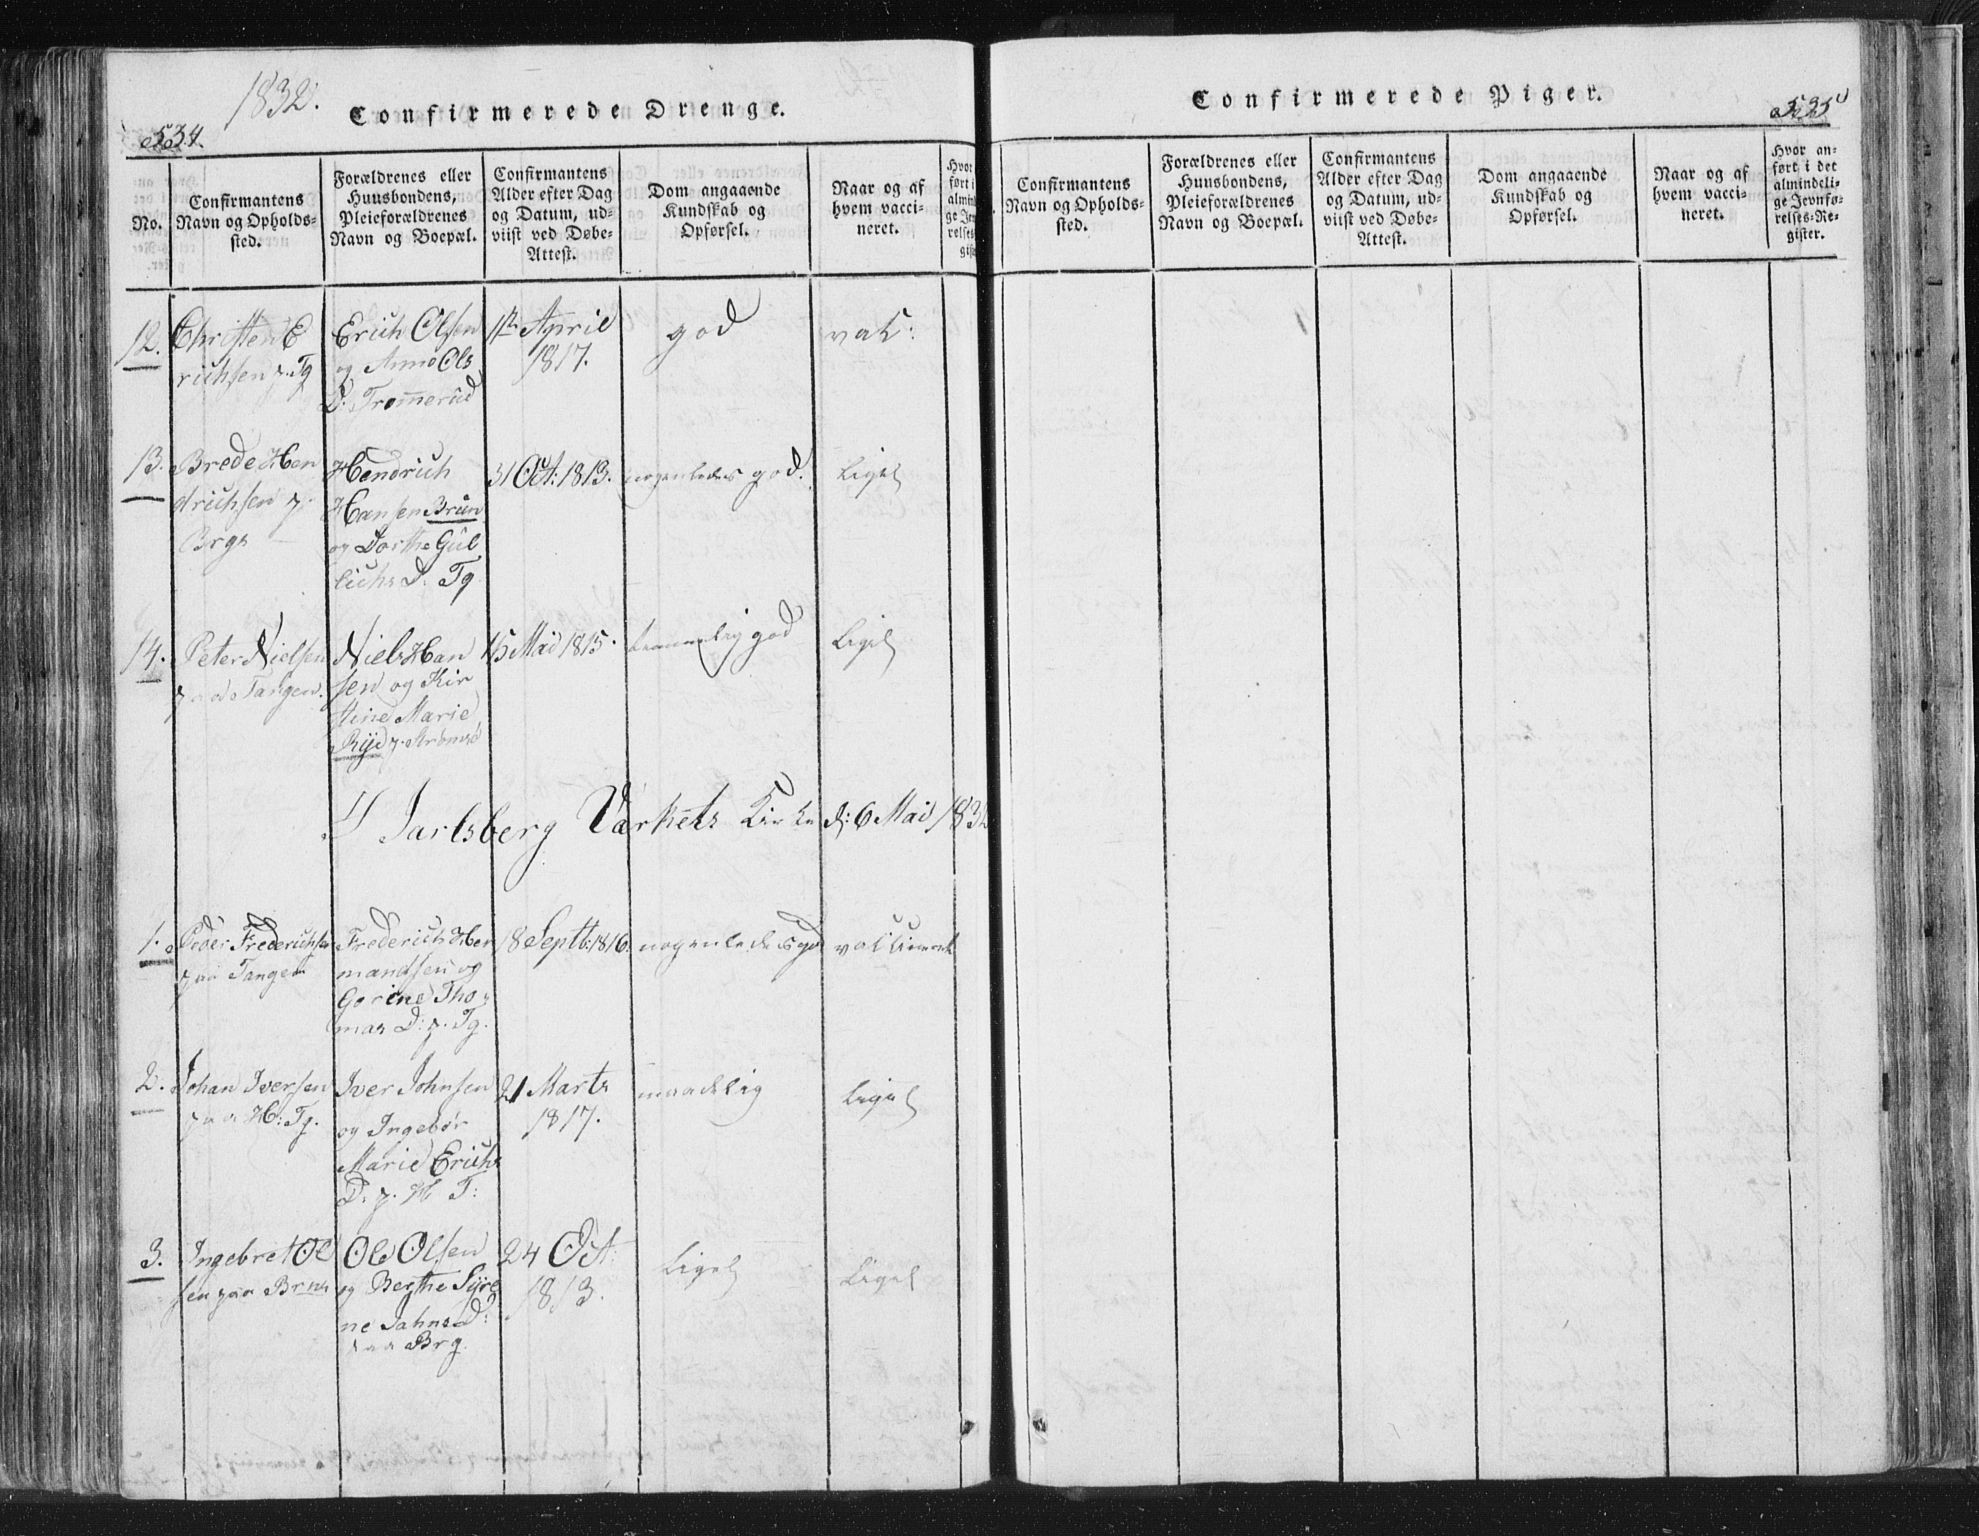 1832.
Confirmerede Drenge.
534.
No.
Confirmantens
Navn og Opholds-
sted.
Forældrenes eller
Huusbondens,
Pleieforældrenes
Navn og Boepæl.
Confirmantens
Alder efter Dag
og Datum, ud-
viist ved Døbe-
Attest.
Dom angaaende
Kundskab og
Opførsel.
Naar og af
hvem vacci-
neret.
12.
Christen E
richsen p. Tg
Erich Olsen
og Anne Ols
D: Trommerud
April
1817.
god
vak:
13.
Brede Hen
drichsen p.
Brgn
Hendrich
Hansen Bruun
og Dorthe Gul
lichs D. Tg
31 Oct: 1813.
nogenledes god.
ligel
14.
Peter Nielsen
paa Tangen.
Niels Han
sen og Kir
stine Marie
Ryd p. Strømsø
15 Mai 1815.
temmelig god
ligel
I Jarlsberg Værkets Kirke d: 6 Mai 1832
1.
Peder Frederichsen
paa Tangen
Frederich Her
mandsen og
Gorine Tho
mas D: p. Tg.
18 Septb: 1816.
nogenledes god
vaccineret
2.
Johan Iversen
paa H: Tg.
Iver Johnsen
og Ingebør
Marie Erichs
D. p. H T:
21 Marts
1817.
maadelig
ligel
3.
Ingebret Ol
sen paa Brns
Ole Olsen
og Berthe Syre
ne Jahns D:
paa Brg.
24 Oct:
1813.
ligel
ligel
Confirmerede Piger.
535
Confirmantens
Navn og Opholds-
sted.
Forældrenes eller
Huusbondens,
Pleieforældrenes
Navn og Boepæl.
Confirmantens
Alder efter Dag
og Datum, ud-
viist ved Døbe-
Attest.
Dom angaaende
Kundskab og
Opførsel.
Naar og af
hvem vacci-
neret.
Hvor an-
ført i det
almindeli-
ge Jevnfø-
relses-Re-
gister.